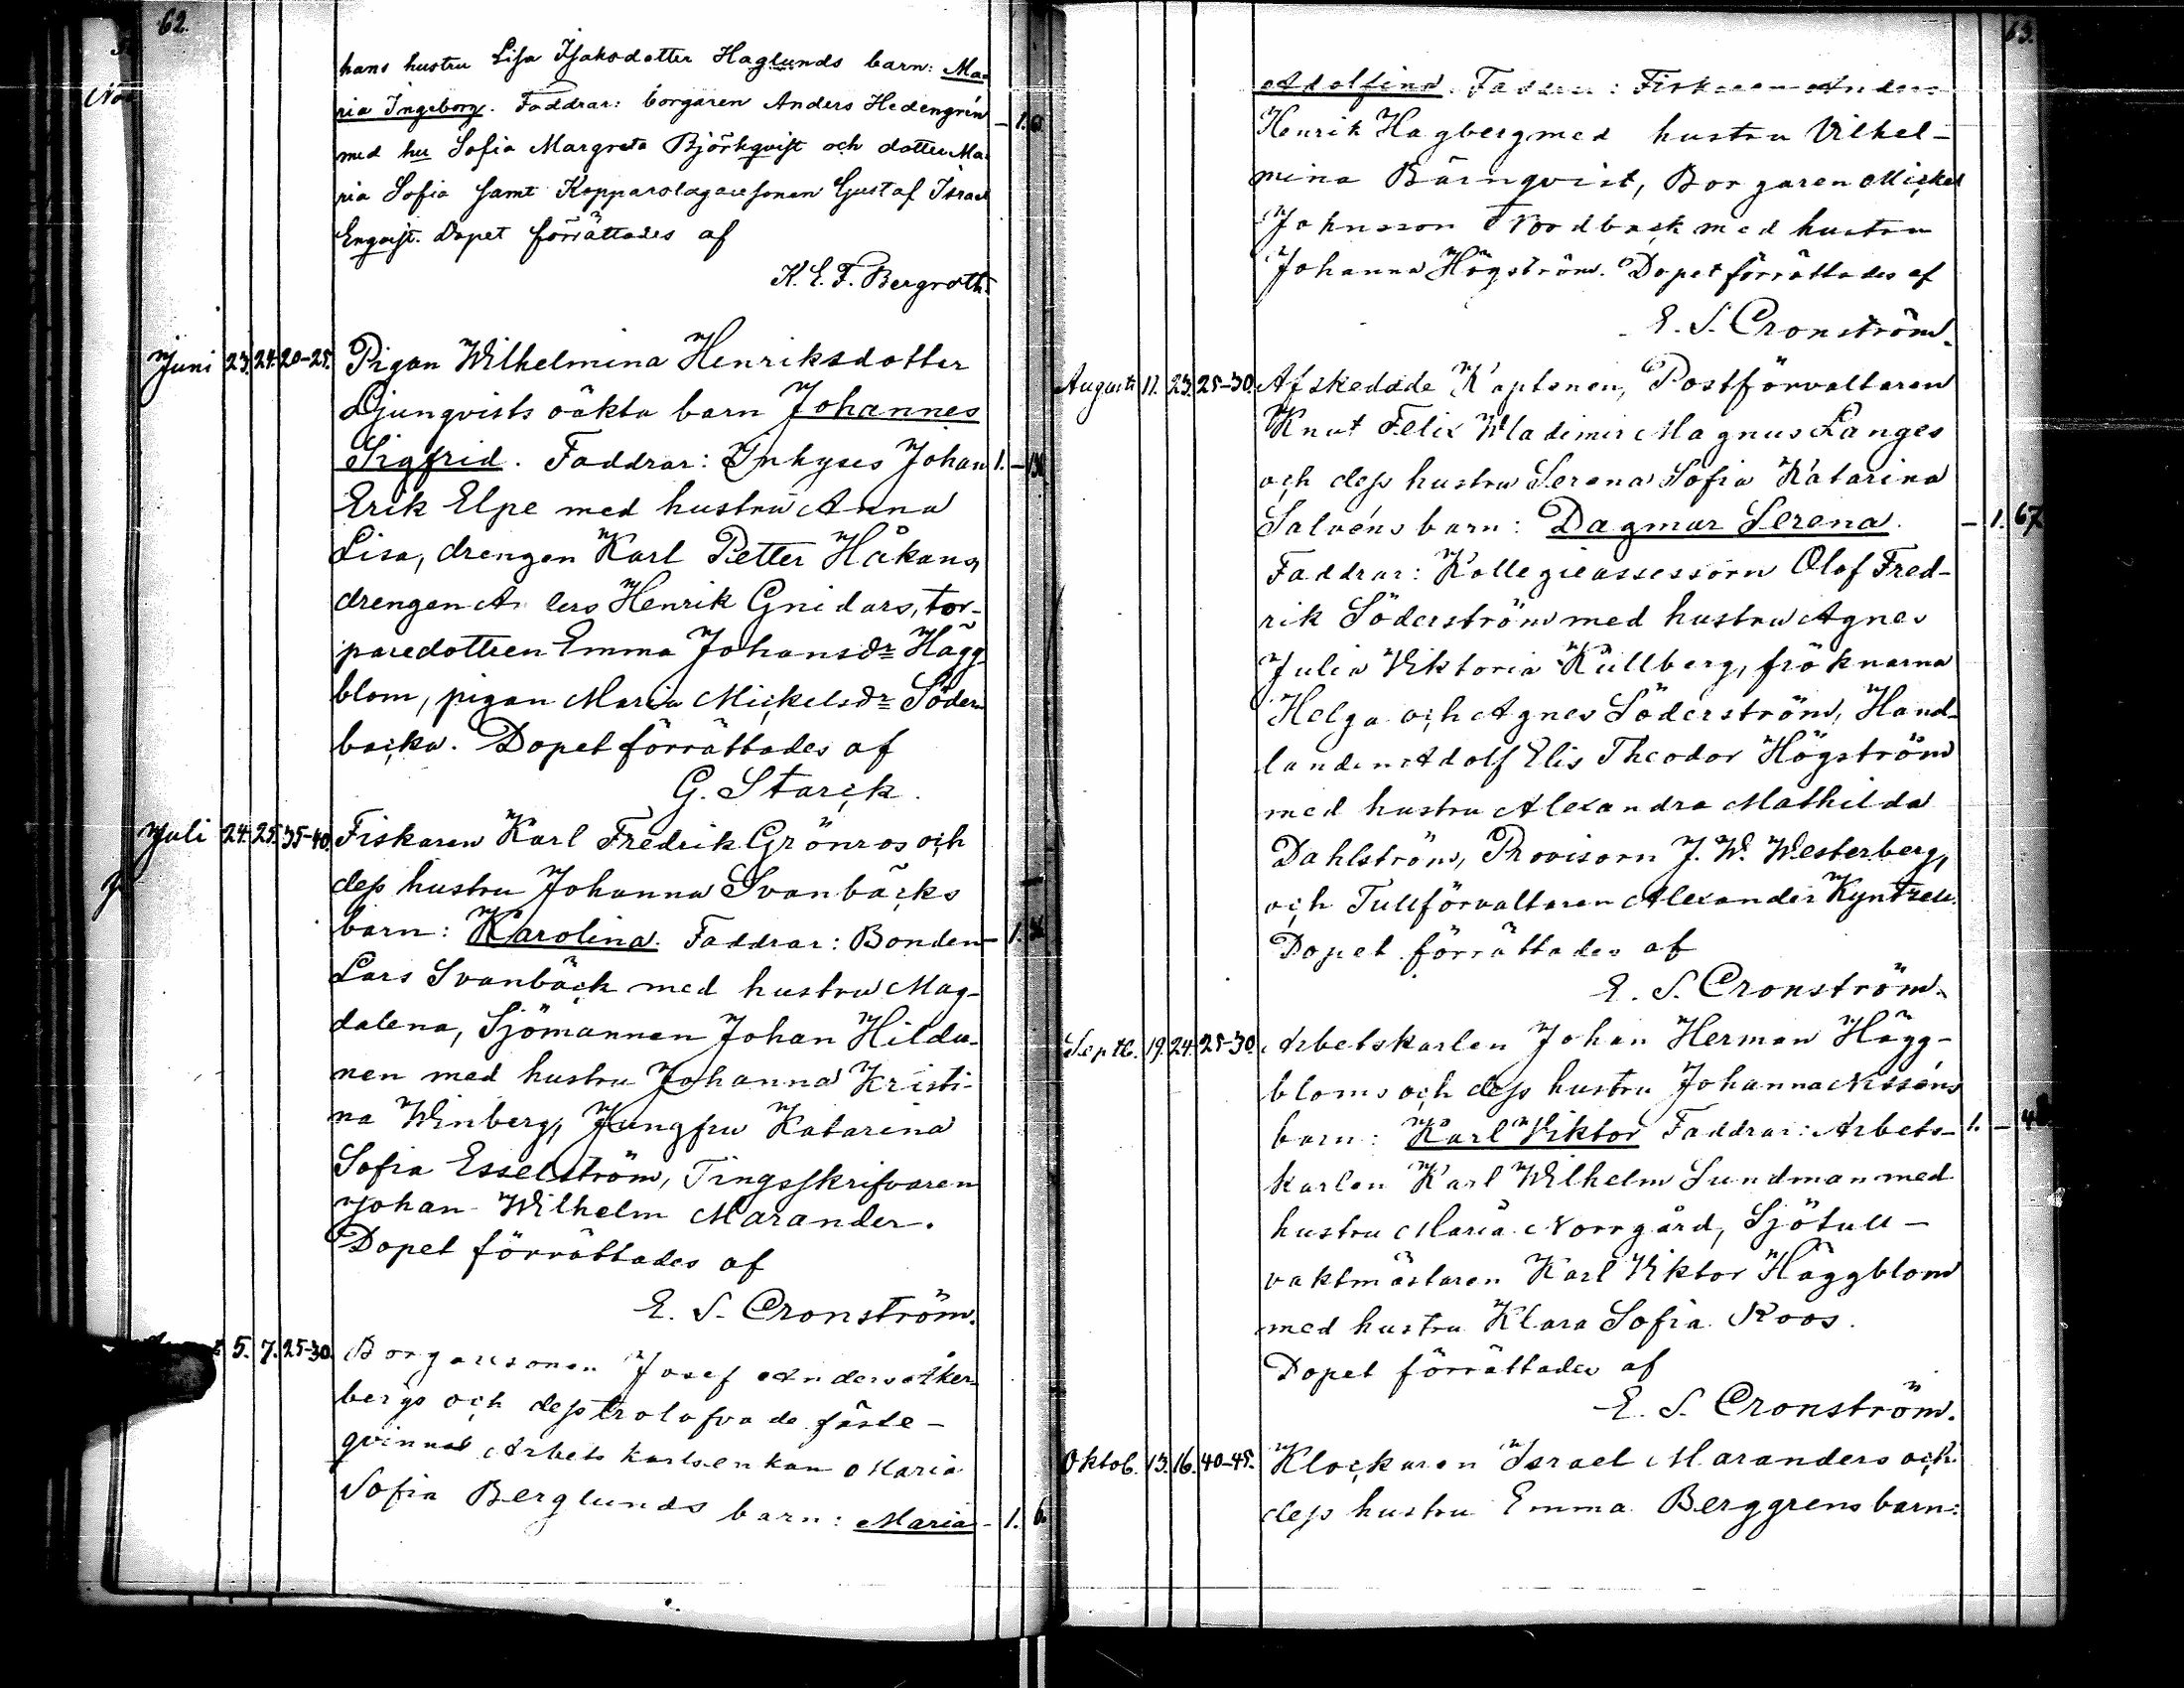 62.
hans hustru Lisa Isaksdotter Haglunds barn: Ma-
ria Ingeborg. Faddrar: borgaren Anders Hedengrén - 1.
med hu Sofia Margreta Björkqvist och dotter Ma-
ria Sofia samt Kopparslagaresonen Gustaf Israel
Enqvist. Dopet förrättades af
K. E. F. Bergroth.
Juni 23. 24. 20-25. Pigan Wilhelmina Henriksdotter
Ljungvists oäkta barn Johannes
Sigfrid. Faddrar: Inhyses Johan 1. -
Erik Elpe med hustru Anna
Lisa, drengen Karl Petter Håkans,
drengen Henrik Gnidars, tor-
paredottren Emma Johansdr Hägg-
blom, pigan Maria Mickelsdr Söder-
backa. Dopet förrättades af
G. Starck.
Juli 24. 25. 35-40. Fiskaren Karl Fredrik Grönros och
dess hustru Johanna Svanbäcks
barn: Karolina. Faddrar: Bonden - 1.
Lars Svanbäck med hustru Mag-
dalena, Sjömannen Johan Hildu-
nen med hustru Johanna Kristi-
na Winberg, Jungfru Katarina
Sofia Esselström, Tingsskrifvaren
Johan Wilhelm Marander.
Dopet förrättades af
E. S. Cronström.
5. 7. 25-30. Borgaresonen Josef Anders Åker-
bergs och dess trolofvade fäste-
qvinnas Arbetskarlsenkan Maria
Sofia Berglunds barn: Maria - 1. 6.
63.
Adolfina. Faddrar: Fiskaren Anders
Henrik Hagberg med hustru Vilhel-
mina Bärnqvist, Borgaren Mickel
Johnsson Nordback med hustru
Johanna Högström. Dopet förrättades af
E. S. Cronström.
Augusti 11. 23. 25-30. Afskedade Kaptenen, Postförvaltaren
Knut Felix Wladimir Magnus Langes
och dess hustru Serena Sofia Katarina
Salvéns barn: Dagmar Serena. - 1. 67.
Faddrar: Kollegieassessorn Olof Fred-
rik Söderström med hustru Agnes
Julia Viktoria Küllberg, fröknarna
Helga och Agnes Söderström, Hand-
landen Adolf Elis Theodor Högström
med hustru Alexandra Mathilda
Dahlström, Provisorn J. W. Westerberg,
och Tullförvaltaren Alexander Kyntzell.
Dopet förrättades af
E. S. Cronström.
Septb. 19. 24. 25-30. Arbetskarlen Johan Herman Hägg-
bloms och dess hustru Johanna Nisséns
barn: Karl Viktor Faddrar: Arbets- 1. -
karlen Karl Wilhelm Sundman med
hustru Maria Norrgård, Sjötull-
vaktmästaren Karl Viktor Häggblom
med hustru Klara Sofia Roos.
Dopet förrättades af
E. S. Cronström.
Oktob. 13. 16. 40-45. Klockaren Israel Maranders och
dess hustru Emma Berggrens barn: